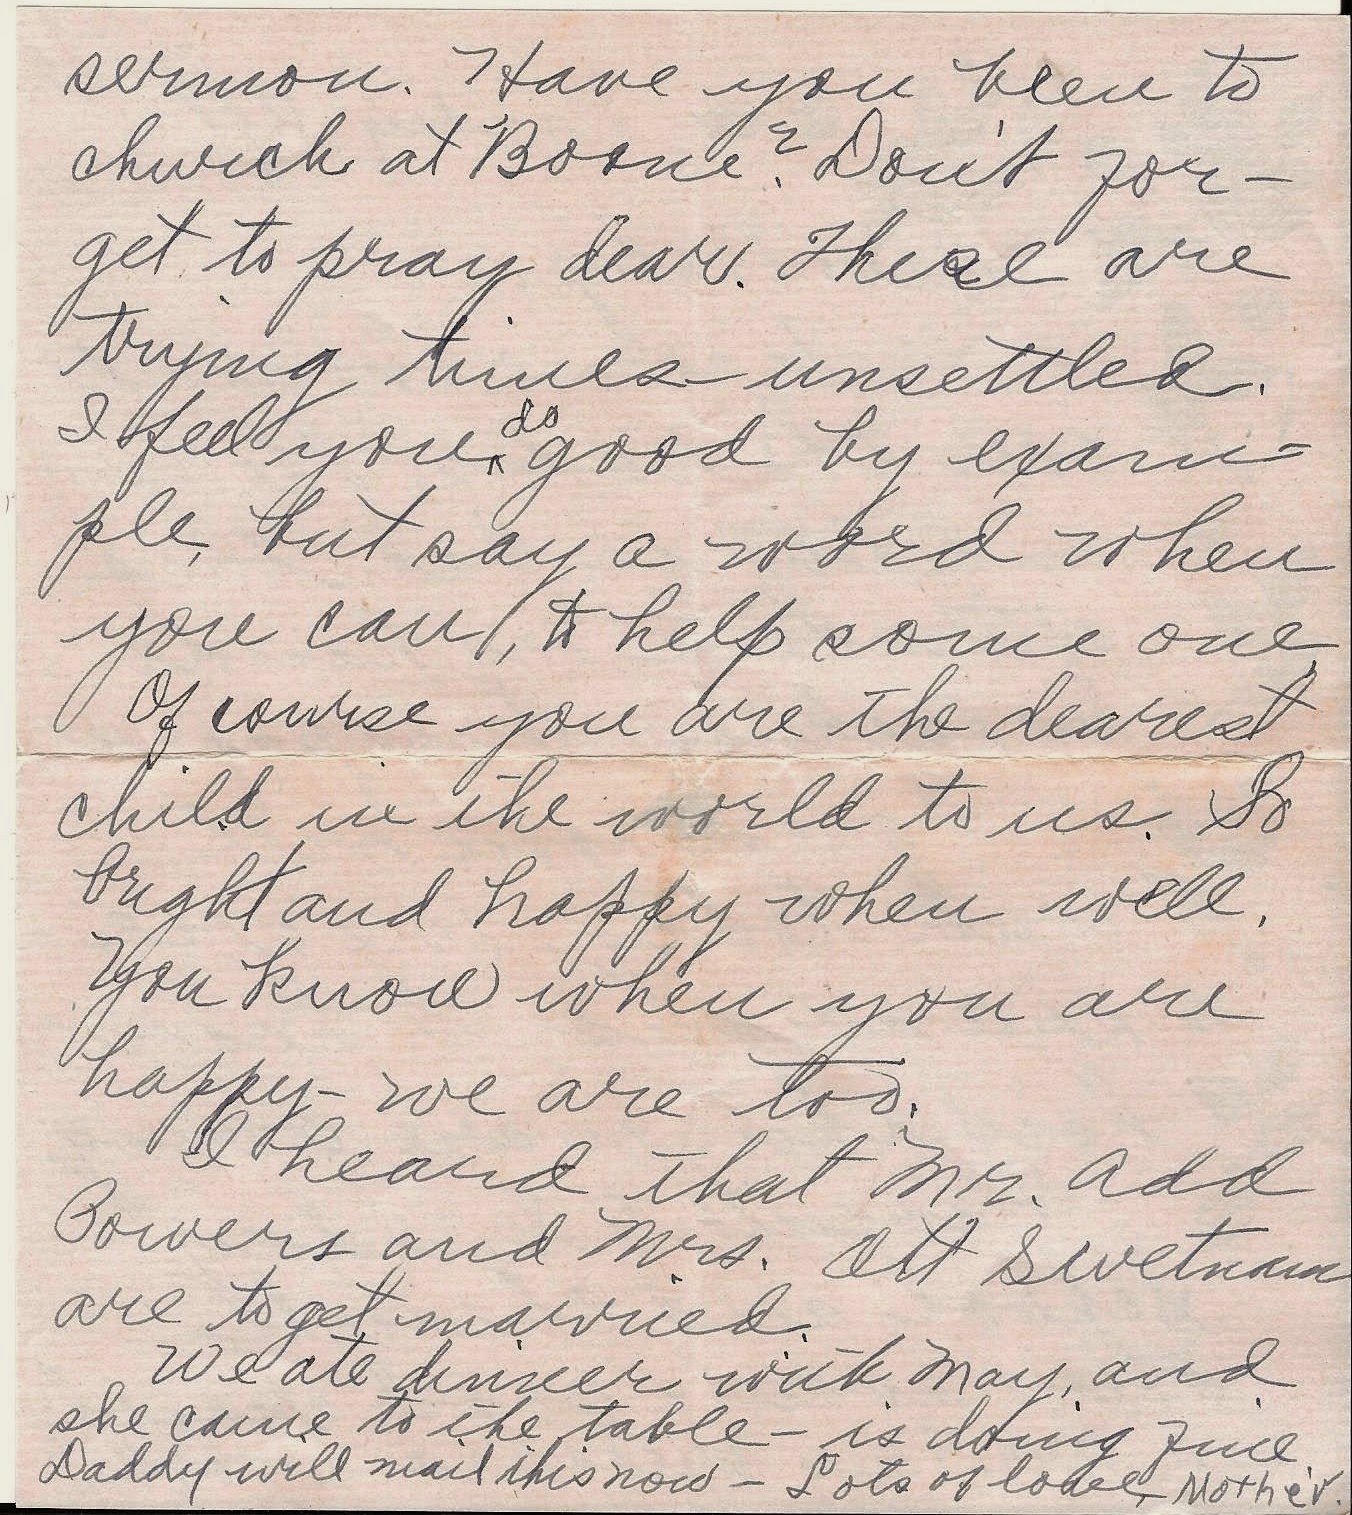 sermon. Have you been to
church at Boone? Don't for-
get to pray dear. These are
trying times - unsettled.
I feel you do good by exam-
ple, but say a word when
you can, to help some one.
Of course you are the dearest
child in the world to us. So
bright and happy when well.
You know when you are
happy - we are too.
I heard that Mr. Add
Bowers and Mrs. Ott Swetnam
are to get married.
We ate dinner with May, and
she came to the table - is doing fine
Daddy will mail this now - Lots of love, Mother.